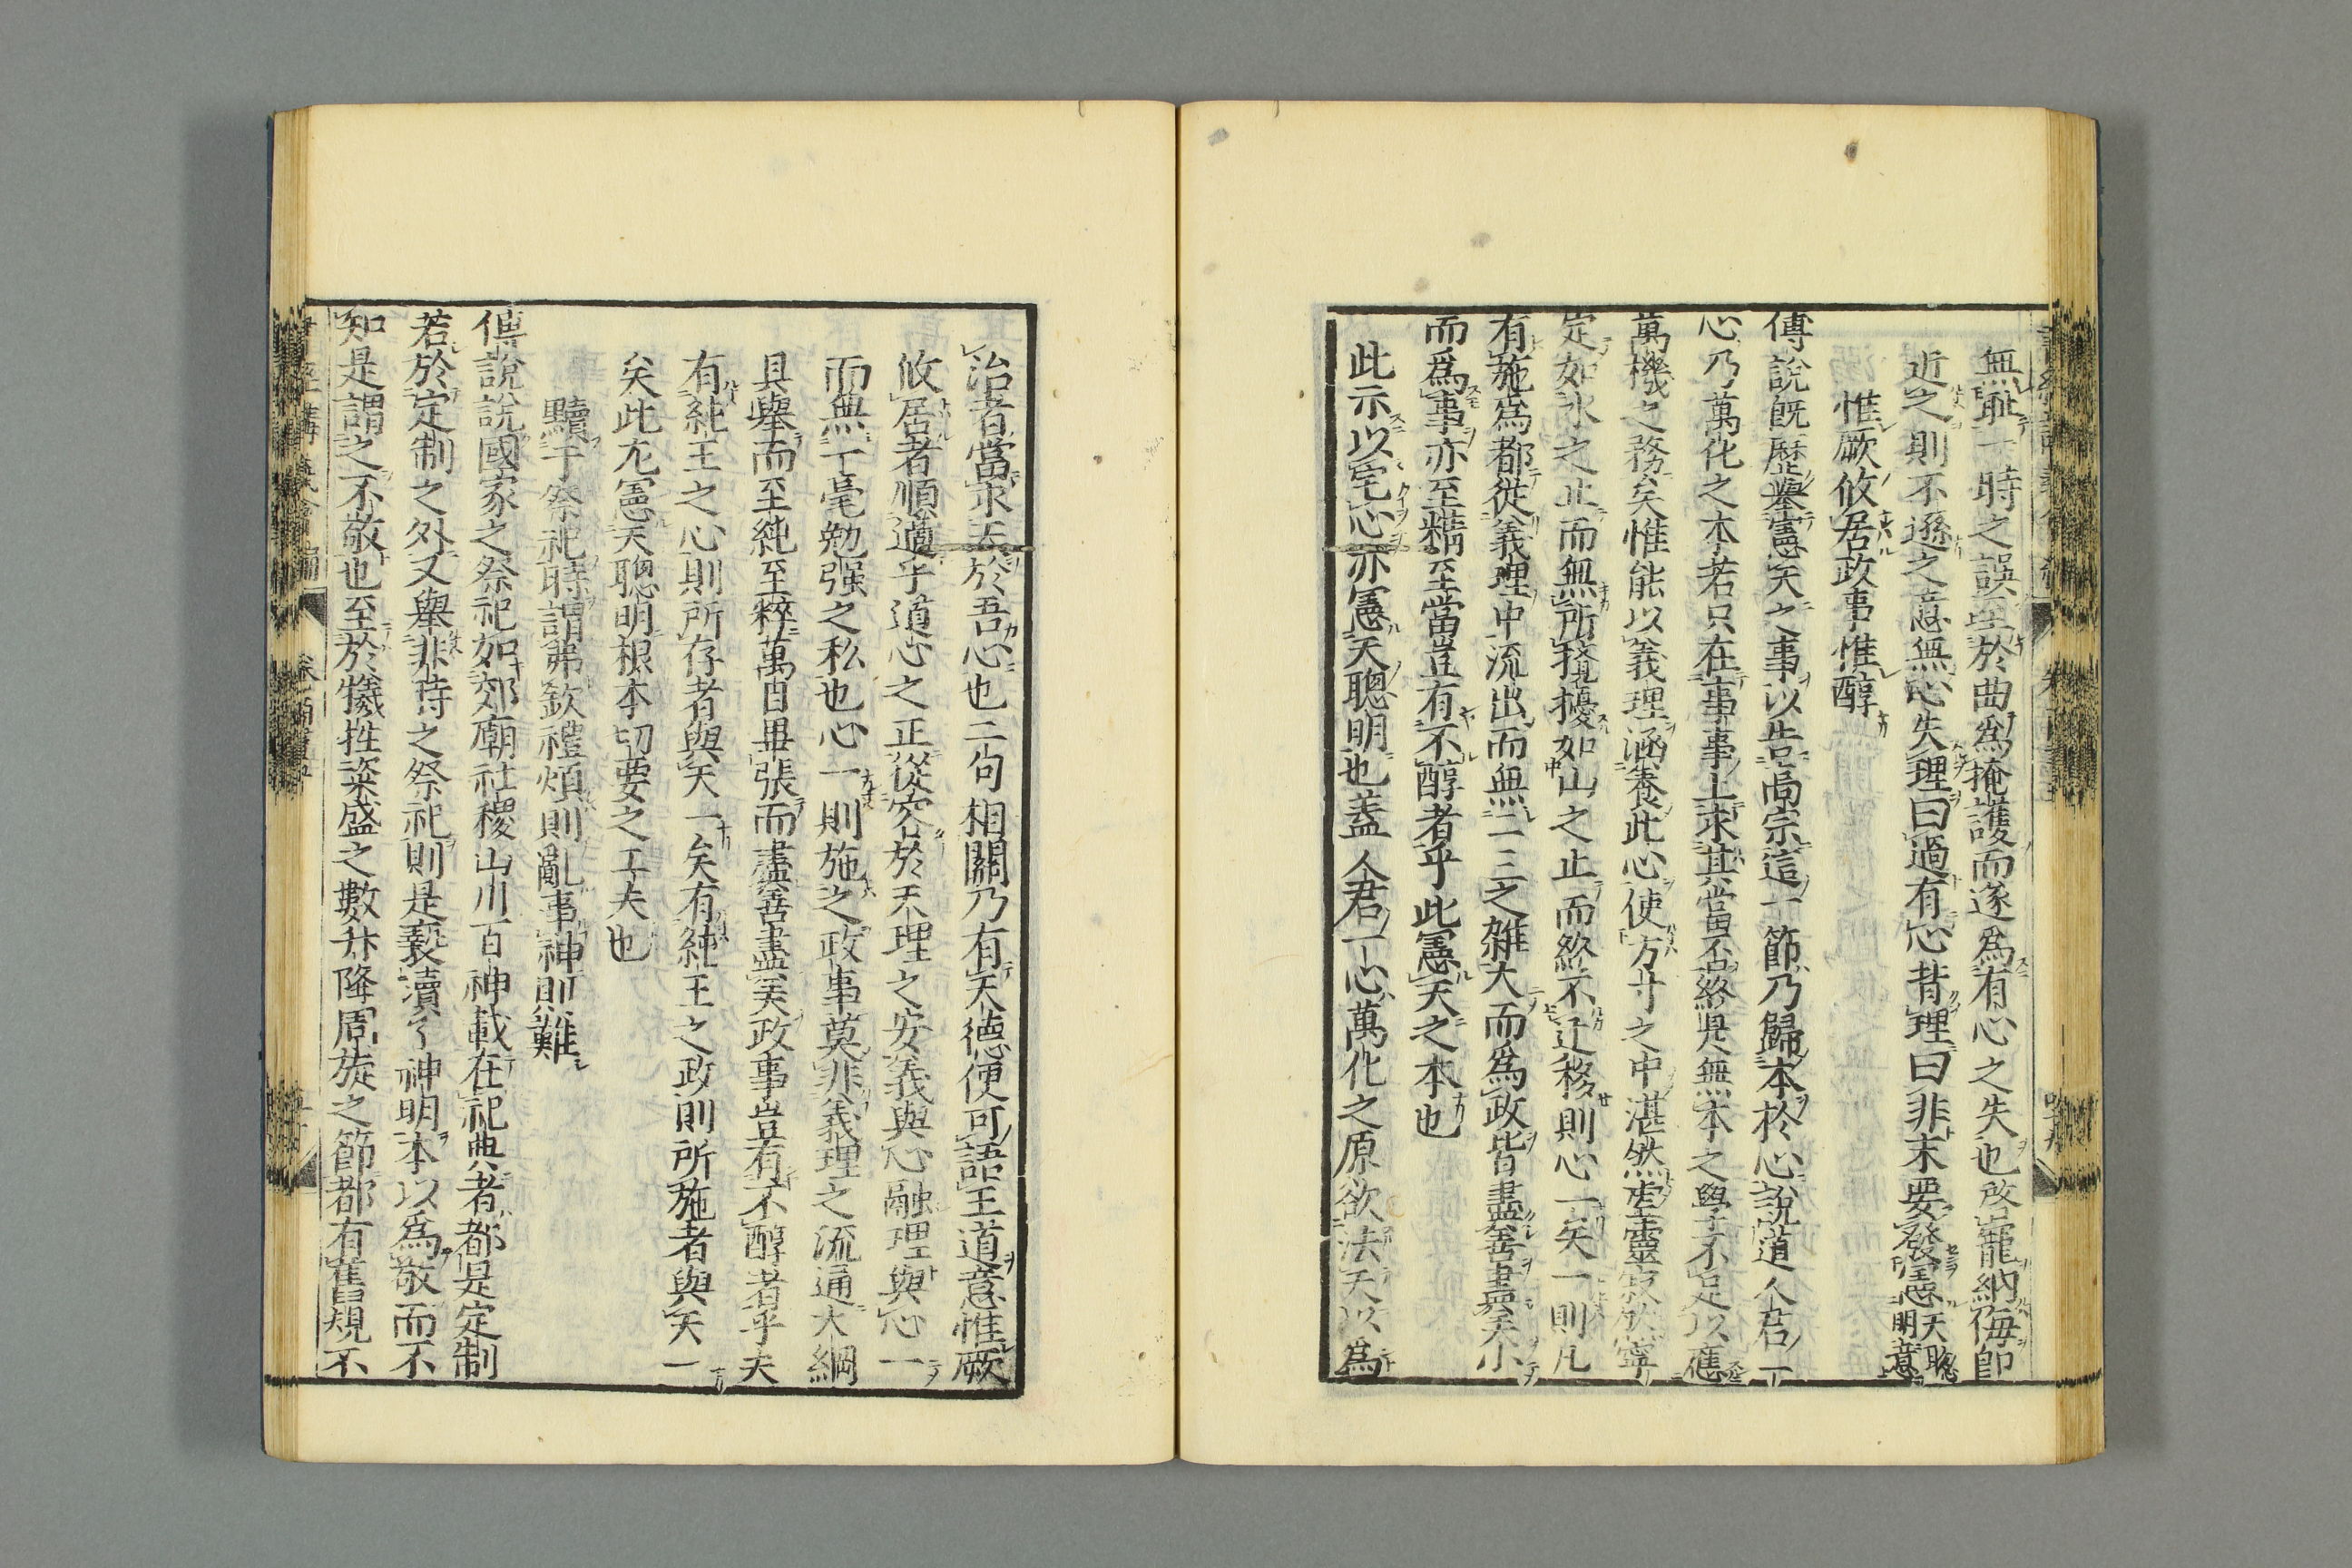 無恥一時之誤至於曲爲掩護而遂爲有心之失也啓寵納侮卽
近之則不遜之意無心失理曰過有心背理曰非末要發憲天聰明意
惟厥攸居政事惟醇
傅說旣歷擧憲天之事以告高宗這一節乃歸本於心說道人君一
心乃萬化之本若只在事事上求其當否終是無本之學不足以應
萬機之務矣惟能以義理涵養此心使方寸之中湛然虛靈寂然寧
定如水之止而無所攪擾如山之止而終不迁移則心一矣一則凡
有施爲都從義理中流出而無二三之雜大而爲政皆盡善盡美小
而爲事亦至精至當豈有不醇者乎此憲天之本也
此示以宅心亦憲天聰明也蓋人君一心萬化之原欲法天以爲
治者當求天於吾心也二句相關乃有天德便可語王道意惟厥
攸居者順適乎道心之正從容於天理之安義與心融理與心一
而無一毫勉强之私也心一則施之政事莫非義理之流通大綱
具擧而至純至粹萬目畢張而盡善盡美政事豈有不醇者乎夫
有純王之心則所存者與天一矣有純王之政則所施者與天一
矣此尤憲天聰明根本切要之工夫也
黷于祭祀時謂弗欽禮煩則亂事神則難
傅說說國家之祭祀如郊廟社稷山川百神載在祀典者都是定制
若於定制之外又擧非時之祭祀則是褻瀆了神明本以爲敬而不
知是謂之不敬也至於犧牲粢盛之數升降周旋之節都有舊規不